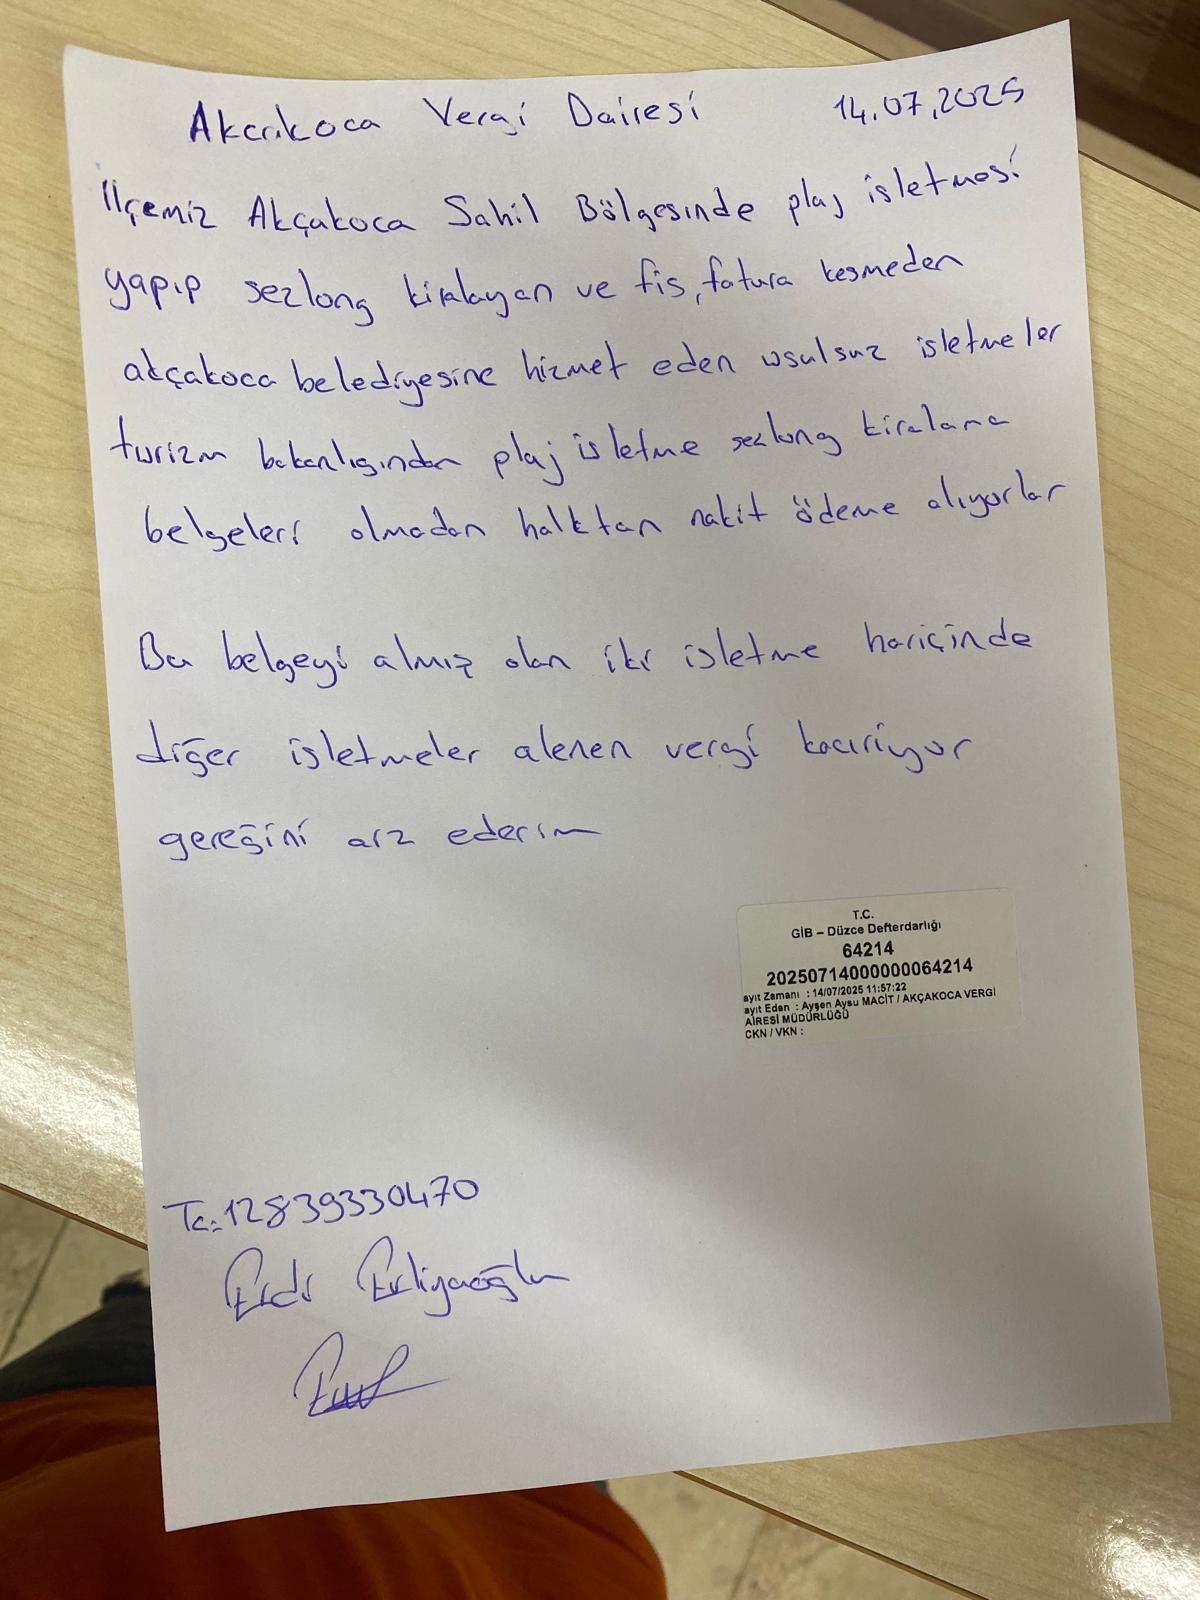 Akcakoca Vergi Dairesi 14.07.2025
İlçemiz Akçakoca Sahil Bölgesinde plaj işletmesi
yapıp sezlong kiralayan ve fis, fatura kesmeden
akçakoca belediyesine hizmet eden usulsuz işletmeler
turizm bakanlıgından plaj isletme sezlong kiralama
belgeleri olmadan halktan nakit ödeme alıyorlar
Bu belgeyi almış olan iki işletme hariçinde
diğer işletmeler alenen vergi kacırıyor
gereğini arz ederim
T.C.
GİB – Düzce Defterdarlığı
64214
20250714000000064214
ayıt Zamanı : 14/07/2025 11:57:22
ayıt Eden : Ayşen Aysu MACİT / AKÇAKOCA VERGİ
AİRESİ MÜDÜRLÜĞÜ
CKN / VKN :
Tc: 12839330470